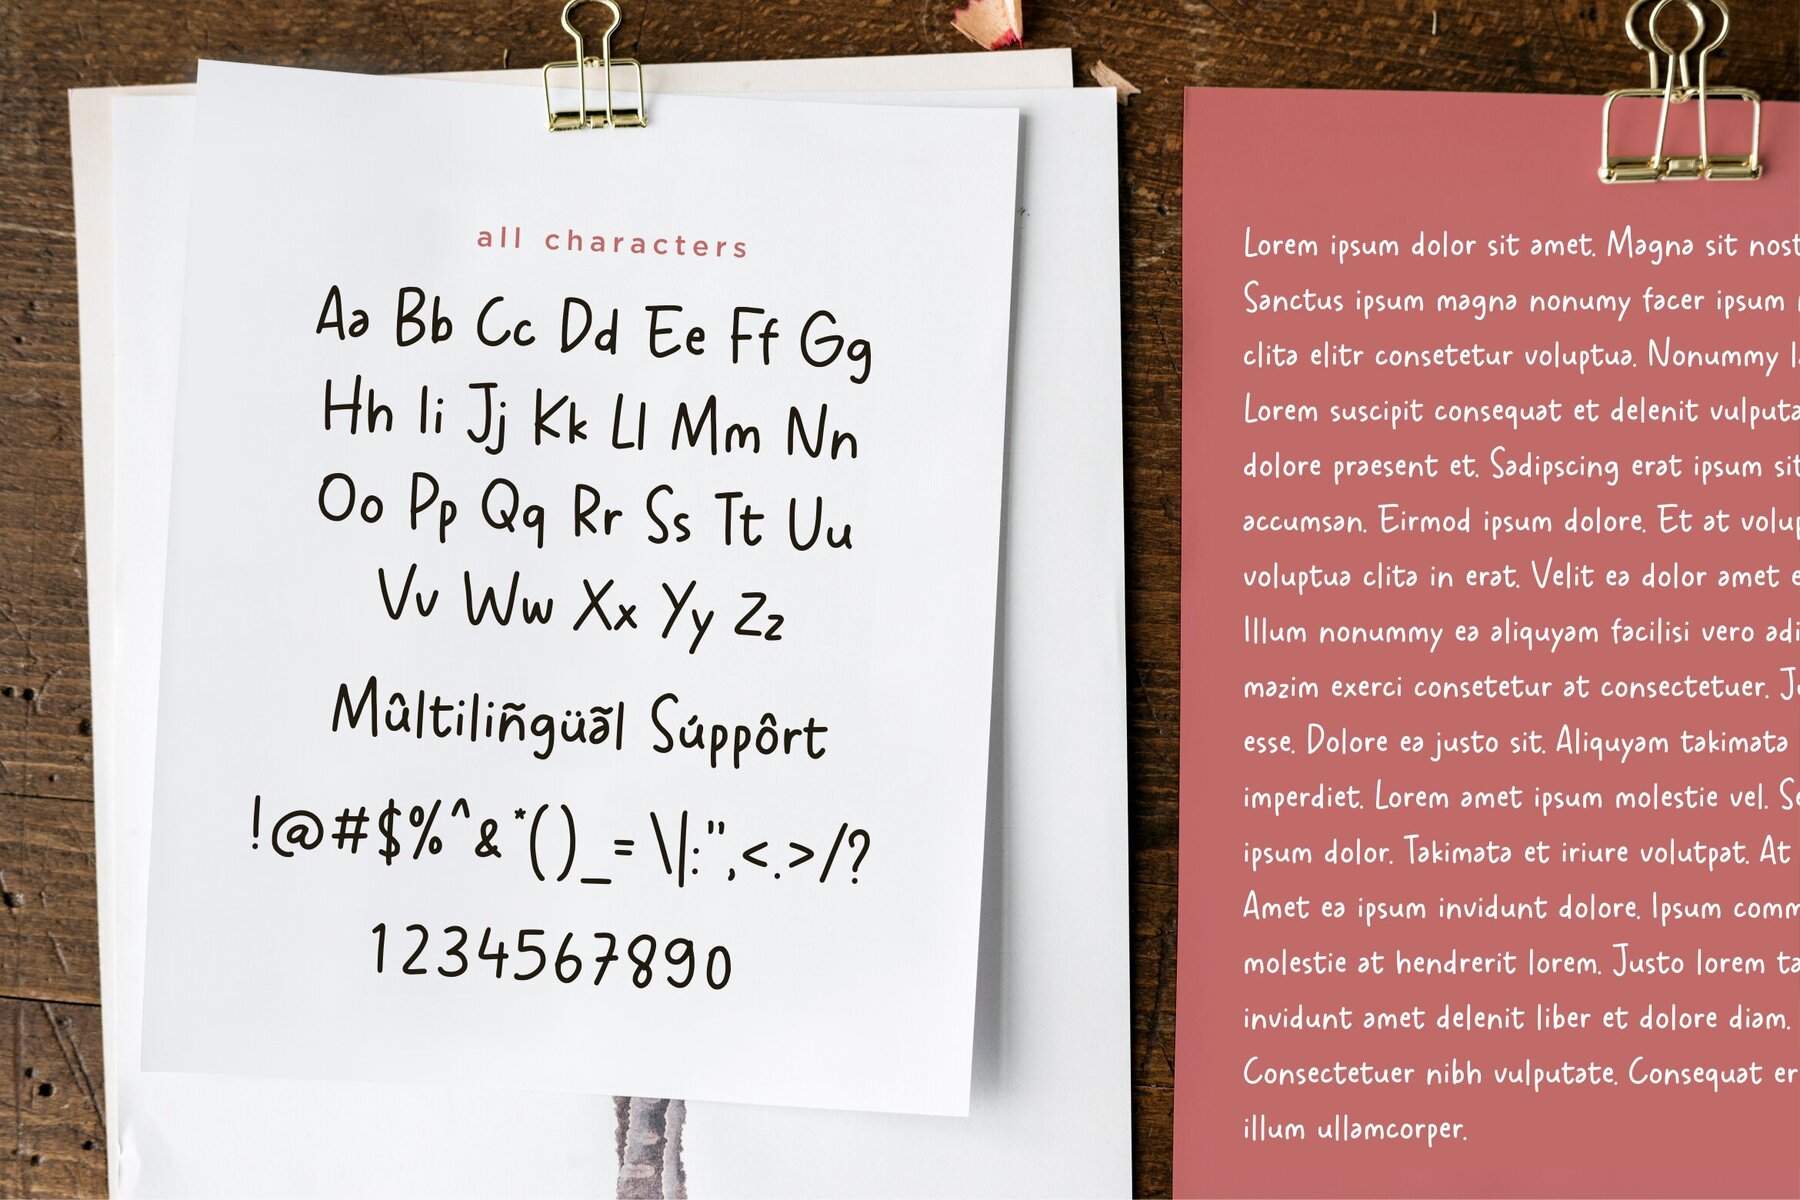 all characters
Aa Bb Cc Dd Ee Ff Gg
Hh Ii Jj Kk Ll Mm Nn
Oo Pp Qq Rr Ss Tt Uu
Vv Ww Xx Yy Zz
Mûltiliñgüãl Súppôrt
!@#$%^&*()_= \|:",<.>/?
1234567890
Lorem ipsum dolor sit amet. Magna sit
Sanctus ipsum magna nonumy facer ipsum
clita elitr consetetur voluptua. Nonummy
Lorem suscipit consequat et delenit
dolore praesent et. Sadipscing erat ipsum sit
accumsan. Eirmod ipsum dolore. Et at
voluptua clita in erat. Velit ea dolor amet
Illum nonummy ea aliquyam facilisi vero
mazim exerci consetetur at consectetuer.
esse. Dolore ea justo sit. Aliquyam takimata
imperdiet. Lorem amet ipsum molestie vel.
ipsum dolor. Takimata et iriure volutpat. At
Amet ea ipsum invidunt dolore. Ipsum
molestie at hendrerit lorem. Justo lorem
invidunt amet delenit liber et dolore diam.
Consectetuer nibh vulputate. Consequat
illum ullamcorper.